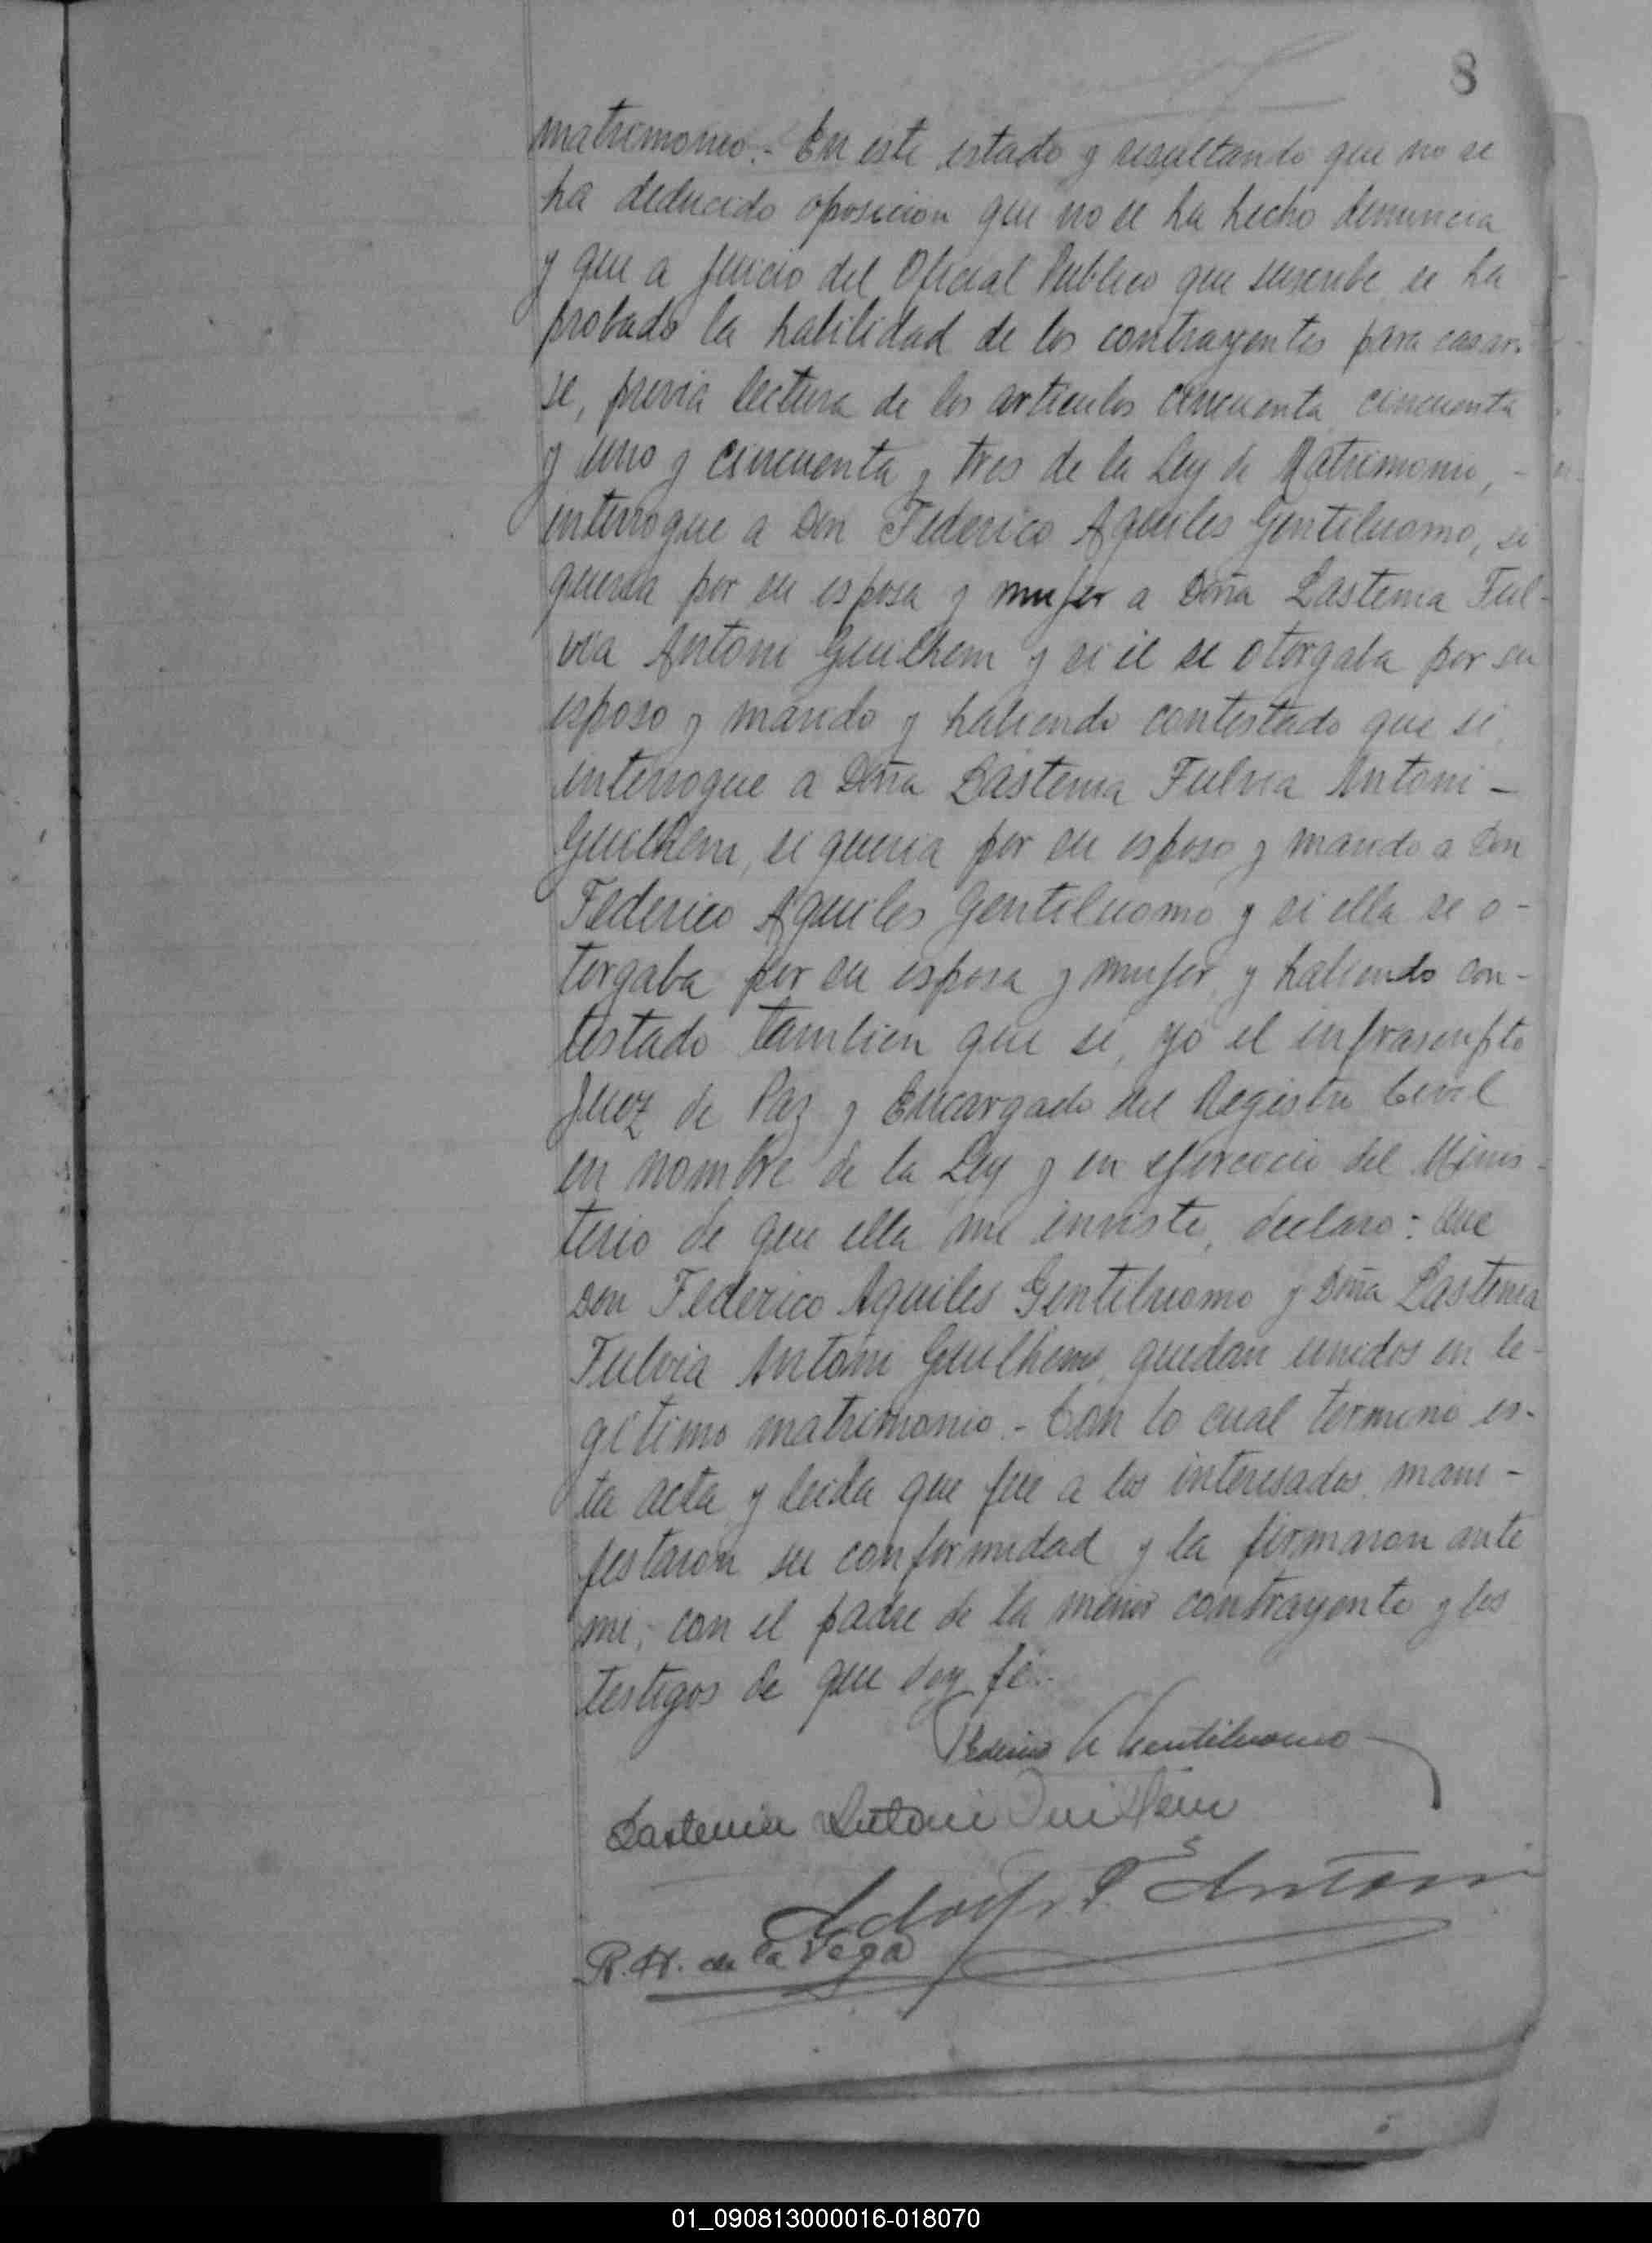 8
matrimonio.- En este estado y resultando que no se
ha deducido oposicion que no se ha hecho denuncia
y que a juicio del Oficial Publico que suscribe se ha
probado la habilidad de los contrayentes para casar-
se, previa lectura de los articulos cincuenta cincuenta
y uno y cincuenta y tres de la Ley de Matrimonio, -
interrogue a Don Federico Aquiles Gentiluomo, si
queria por su esposa y mujer a Doña Lastenia Ful-
via Antoni Guilhem y si él se otorgaba por su
esposo y marido y habiendo contestado que si,
interrogue a Doña Lastenia Fulvia Antoni -
Guilhem, si queria por su esposo y marido a Don
Federico Aquiles Gentiluomo y si ella se o-
torgaba por su esposa y mujer, y habiendo con-
testado tambien que si, yo el infrascripto
Juez de Paz y Encargado del Registro Civil
en nombre de la Ley y en ejercicio del Minis-
terio de que ella me inviste, declaro: Que
Don Federico Aquiles Gentiluomo y Doña Lastenia
Fulvia Antoni Guilhem, quedan unidos en le-
gitimo matrimonio.- Con lo cual termino es-
ta acta y leida que fue a los interesados, mani-
festaron su conformidad y la firmaron ante
mi, con el padre de la menor contrayente y los
testigos de que doy fé.-
Federico A Gentiluomo
Lastenia Antoni Guilhem
Adolfo Antoni
R. H. de la Vega
01_090813000016-018070